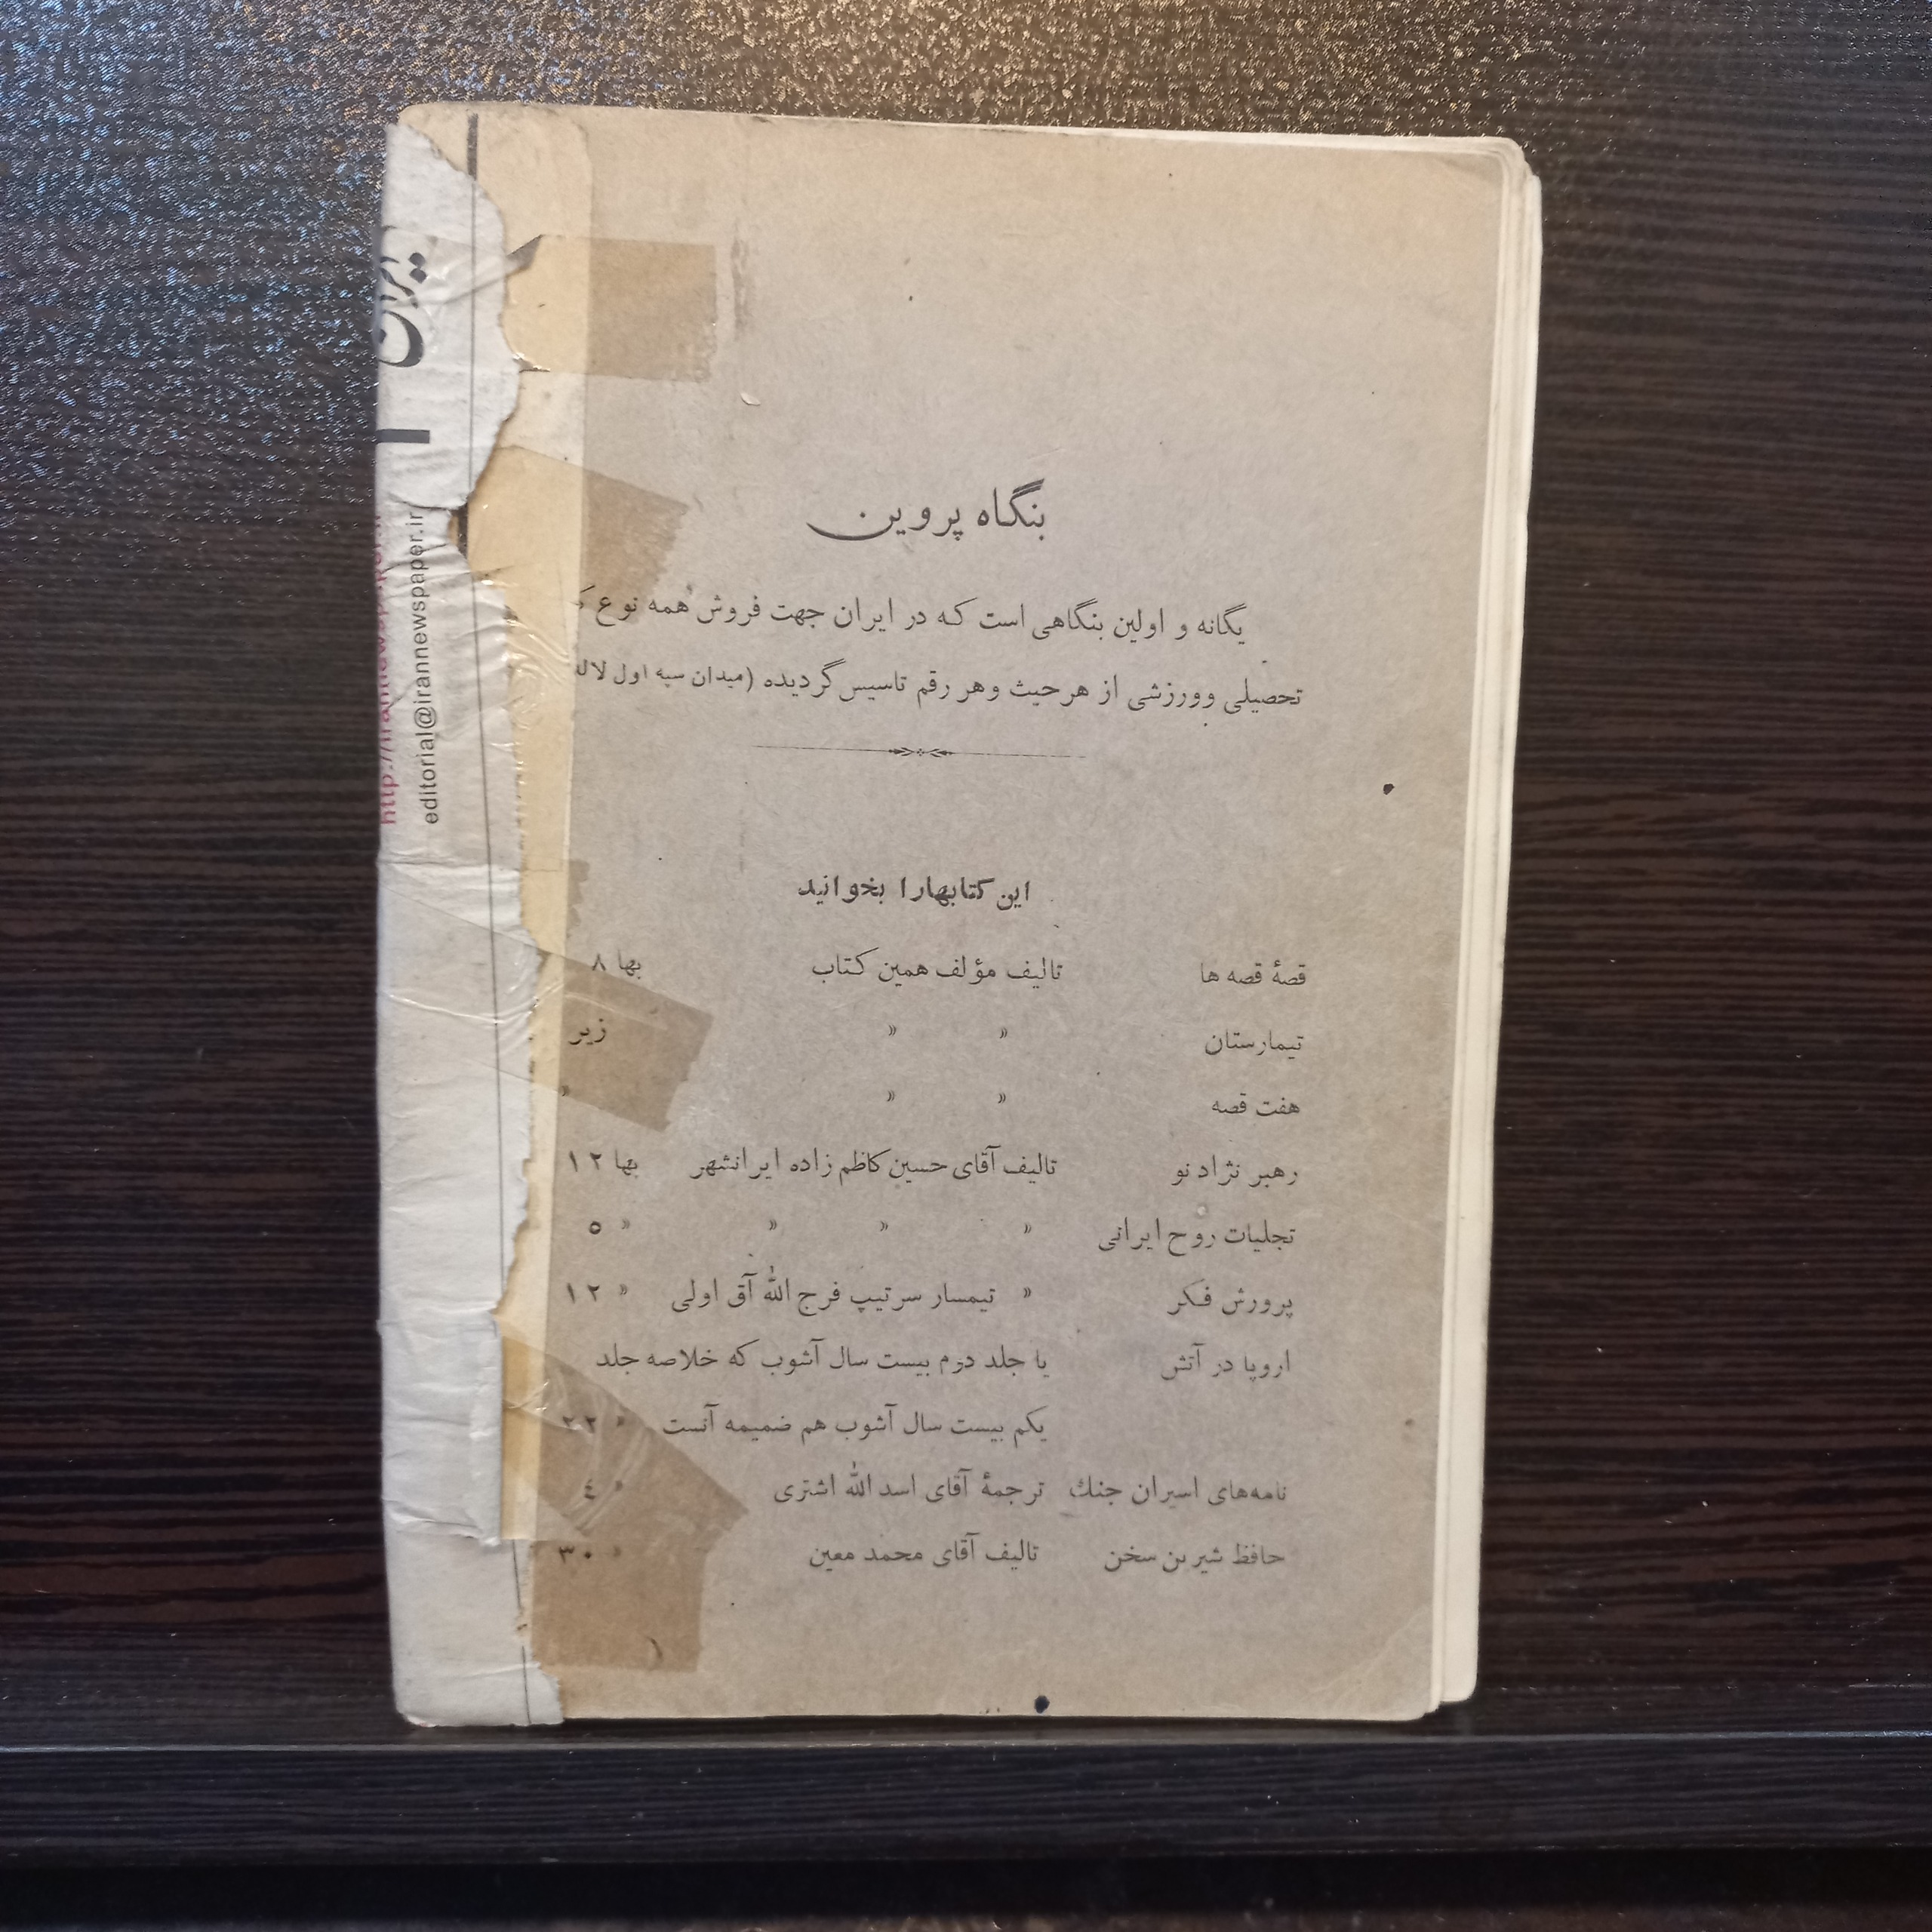 بنگاه پروین
یگانه و اولین بنگاهی است که در ایران جهت فروش همه نوع
تحصیلی وورزشی از هرحیث وهر رقم تاسیس گردیده (میدان سپه اول لاله
این کتابهارا بخوانید
قصهٔ قصه ها تالیف مؤلف همین کتاب بها ۸
تیمارستان » » زیر
هفت قصه » » »
رهبر نژاد نو تالیف آقای حسین کاظم زاده ایرانشهر بها ۱۲
تجلیات روح ایرانی » » » » ۵
پرورش فکر » تیمسار سرتیپ فرج الله آق اولی » ۱۲
اروپا در آتش یا جلد دوم بیست سال آشوب که خلاصه جلد
یکم بیست سال آشوب هم ضمیمه آنست » ۲۲
نامه‌های اسیران جنك ترجمهٔ آقای اسدالله اشتری » ٤
حافظ شیرین سخن تالیف آقای محمد معین » ۳۰
ایران
editorial@irannewspaper.ir